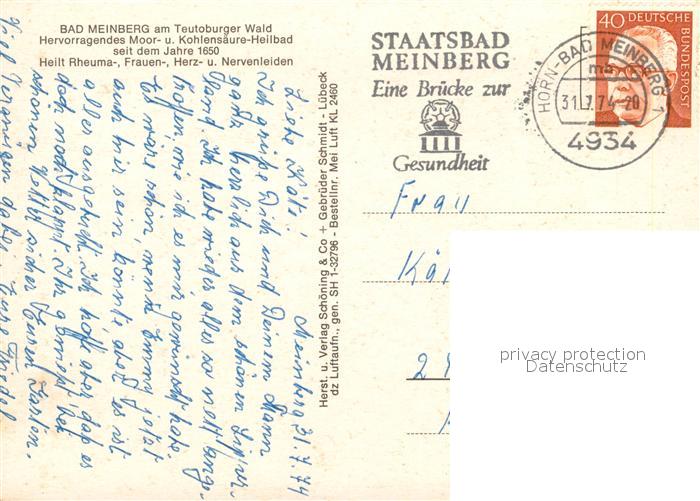 BAD MEINBERG am Teutoburger Wald
Hervorragendes Moor- u. Kohlensäure-Heilbad
seit dem Jahre 1650
Heilt Rheuma-, Frauen-, Herz- u. Nervenleiden
STAATSBAD
MEINBERG
Eine Brücke zur
Gesundheit
HORN-BAD MEINBERG 1
mb
31.7.74-20
4934
40 DEUTSCHE
BUNDESPOST
Herst. u. Verlag Schöning & Co + Gebrüder Schmidt - Lübeck
dz Luftaufn., gen. SH 1-32796 - Bestellnr. Mei Luft KL 2460
Meinberg 31.7.74
Liebe Käte!
Ich grüße Dich und Deinem Mann
ganz herzlich aus dem schönen
Ich habe wieder alles so nett
wie ich es mir gewünscht habe.
Es wäre schön, wenn Emmy jetzt
auch hier sein könnte, aber es ist
alles ausgebucht. Ich hoffe aber, daß es
doch noch klappt. Ihr genießt bei
schönem Wetter sicher Euren Garten.
Viel Vergnügen
Frau
privacy protection
Datenschutz